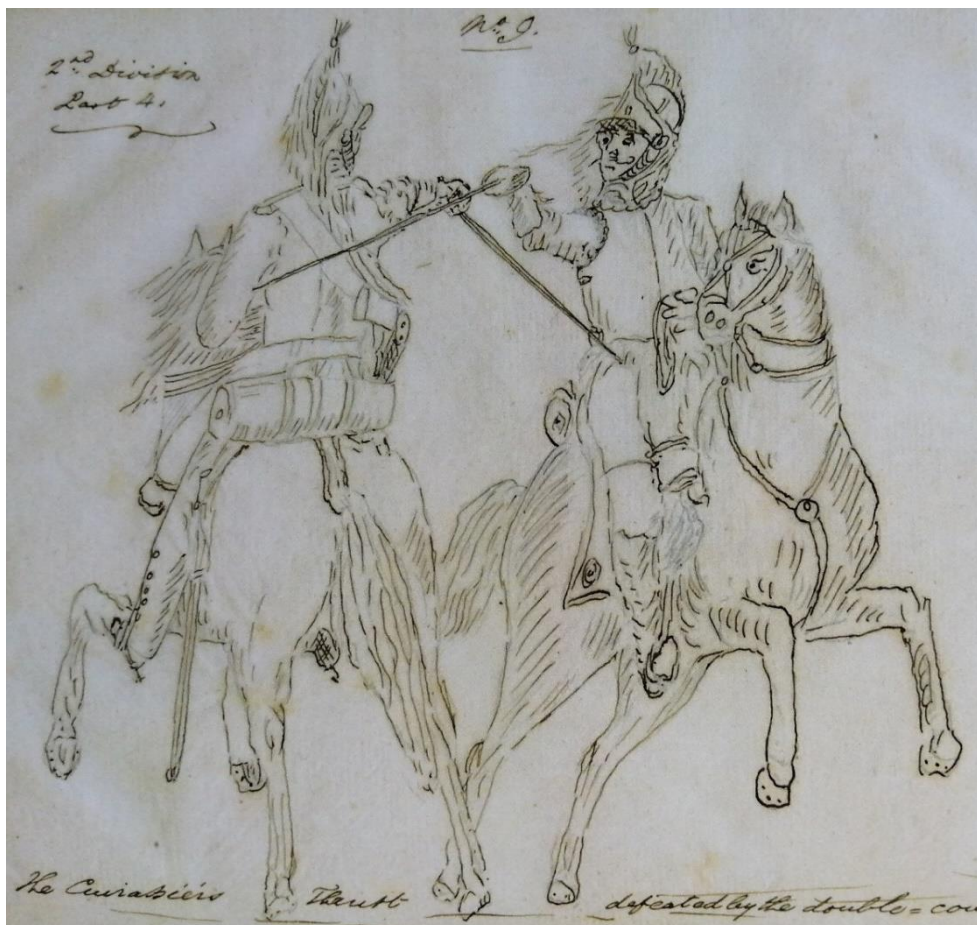 No. 9.
2nd Division
Part 4.
The Cuirassiers Thrust defeated by the double=cou